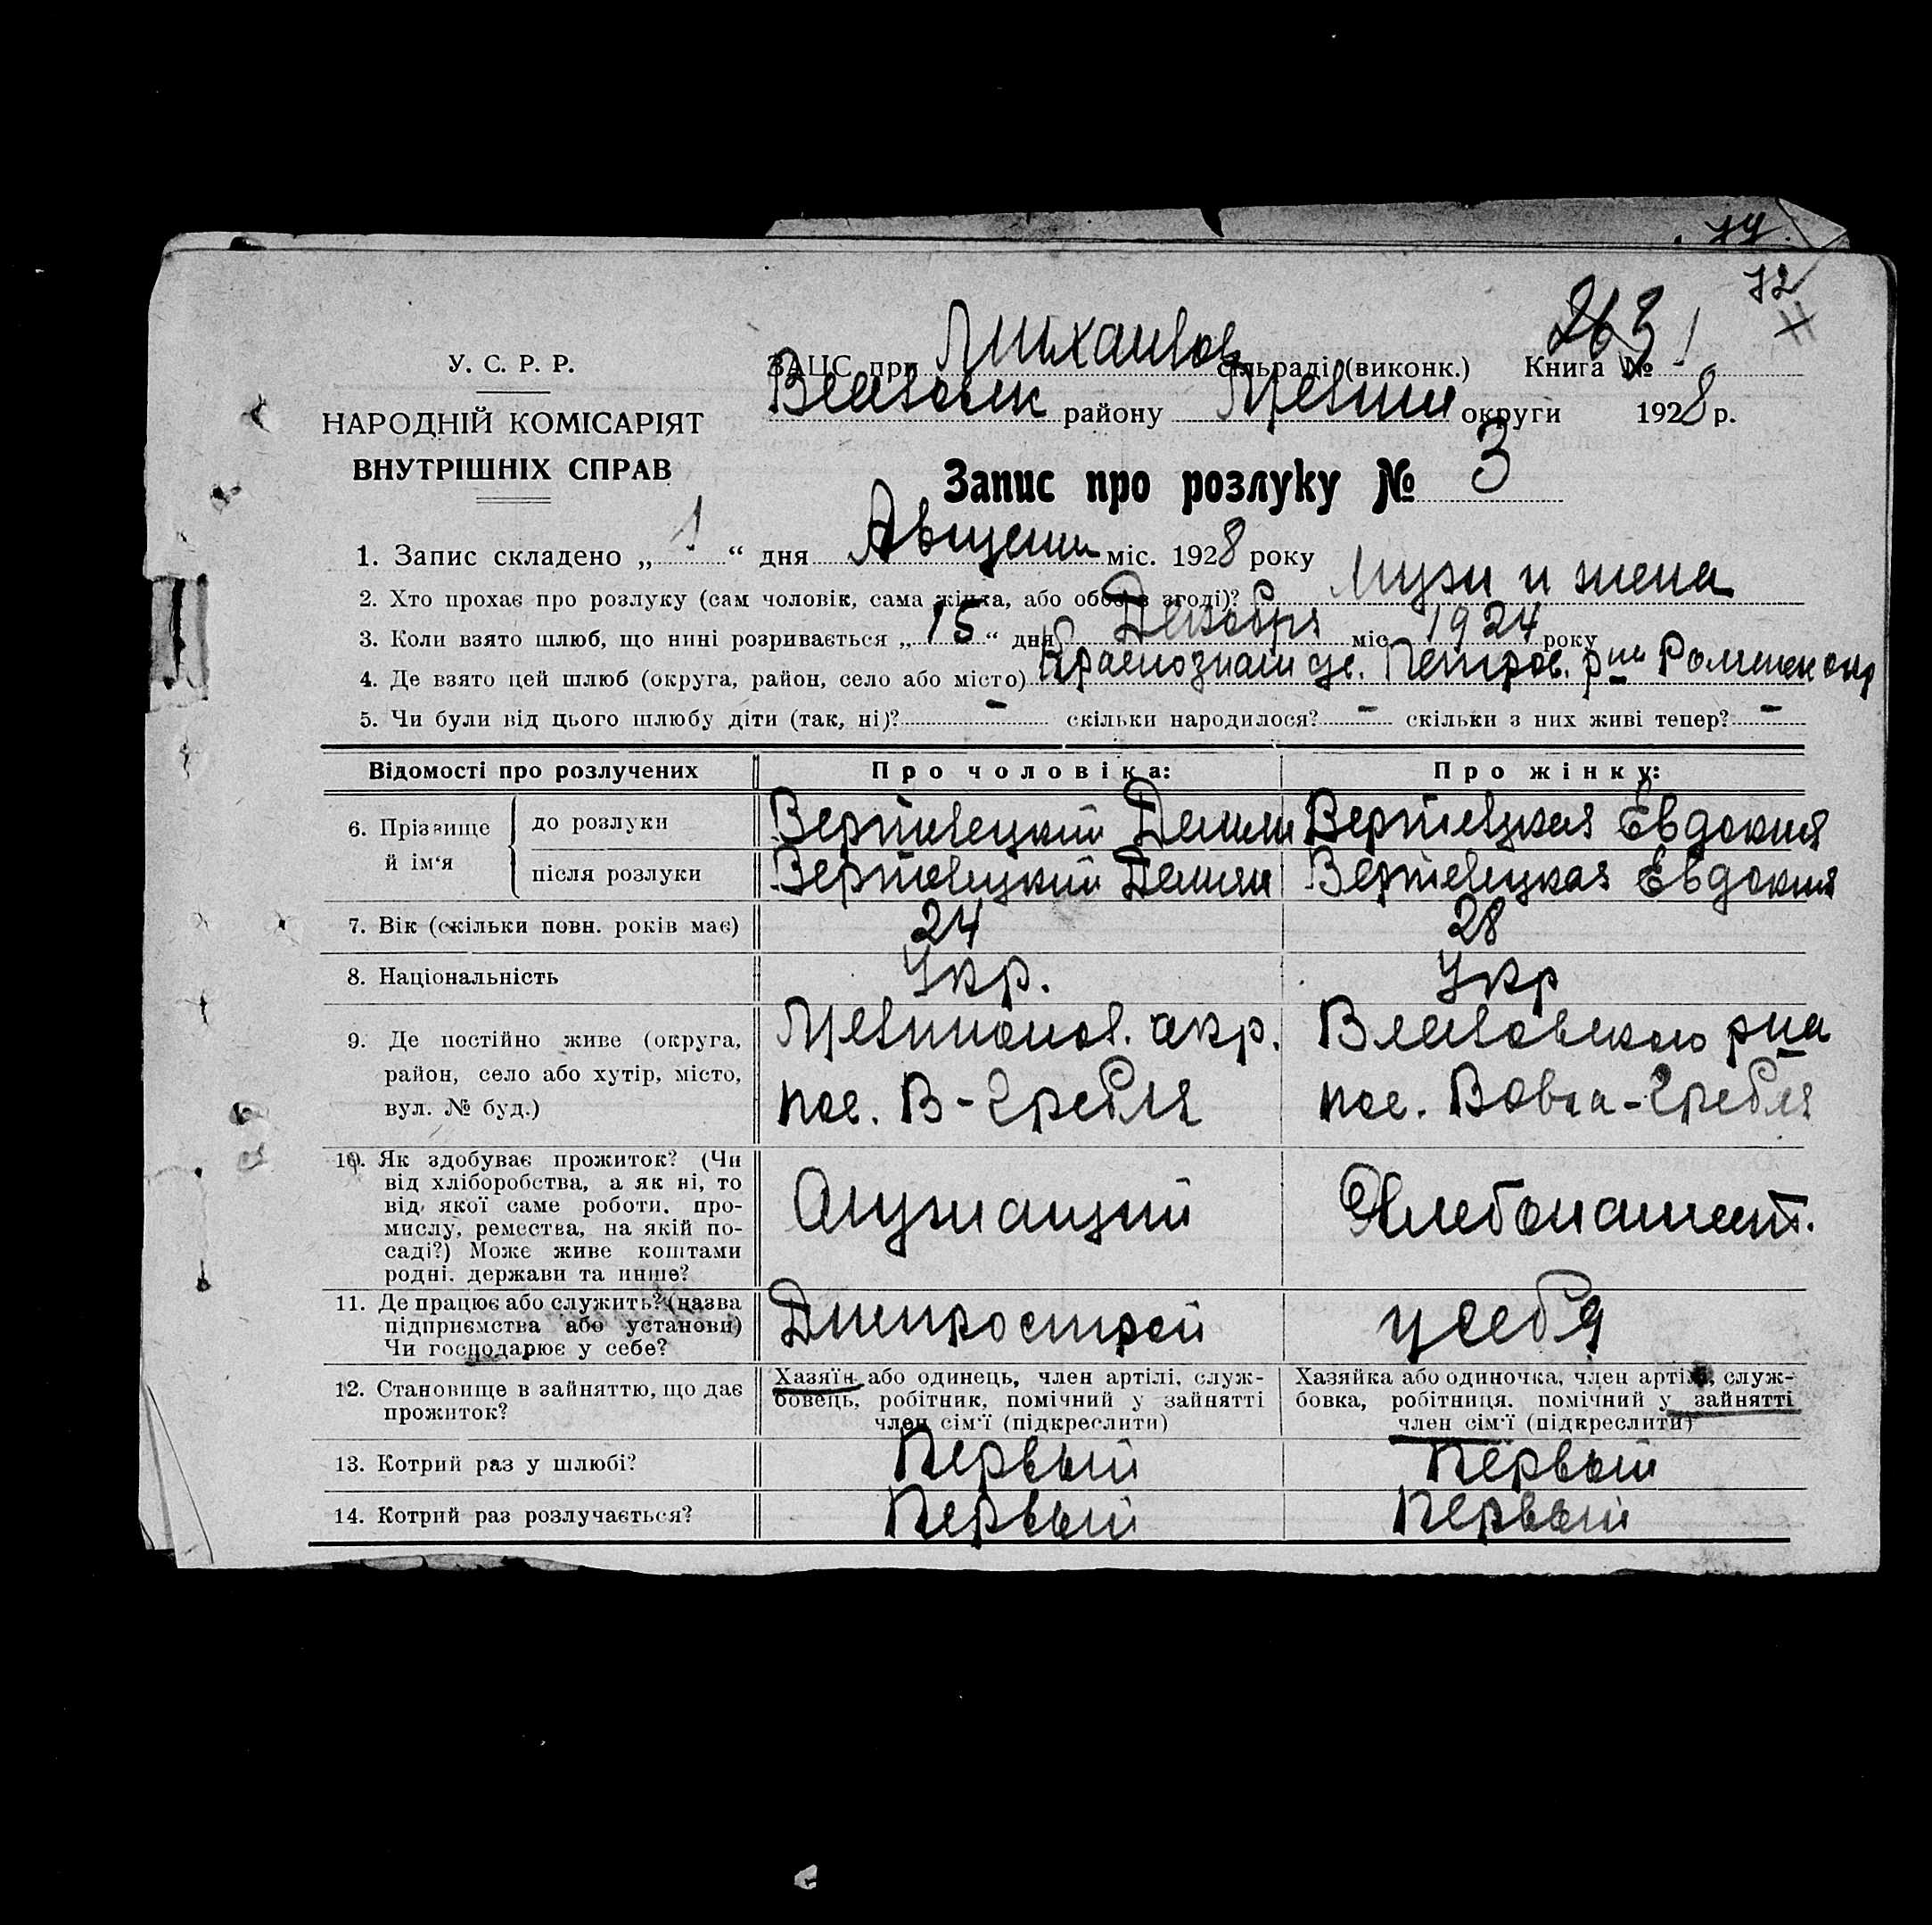 79.
72
263
У. С. Р. Р.
НАРОДНІЙ КОМІСАРІЯТ
ВНУТРІШНІХ СПРАВ
ЗАЦС при Михайлов сільраді (виконк.) Книга № 1
району округи 1928 р.
Запис про розлуку № 3
1. Запис складено „ 1 “ дня Августа міс. 1928 року
2. Хто прохає про розлуку (сам чоловік, сама жінка, або обоє в згоді)? Муж и жена
3. Коли взято шлюб, що нині розривається „ 15 “ дня Декабря міс. 1924 року
4. Де взято цей шлюб (округа, район, село або місто) Петров. р-на Роменск окр
5. Чи були від цього шлюбу діти (так, ні)? – скільки народилося? – скільки з них живі тепер? –
Відомості про розлучених Про чоловіка: Про жінку:
6. Прізвище й ім‘я
до розлуки Демьян Евдокия
після розлуки Демьян Евдокия
7. Вік (скільки повн. років має) 24 28
8. Національність Укр. Укр
9. Де постійно живе (округа, район, село або хутір, місто, вул. № буд.)
окр. р-на
пос. В-Гребля пос. Вовча-Гребля
10. Як здобуває прожиток? (Чи
від хліборобства, а як ні, то
від якої саме роботи, про-
мислу, ремества, на якій по-
саді?) Може живе коштами
родні, держави та инше?
Служащий Хлебопашест.
11. Де працює або служить? (назва
підприємства або установи)
Чи господарює у себе?
Днепрострой у себя
12. Становище в зайняттю, що дає
прожиток?
Хазяїн або одинець, член артілі, служ-
бовець, робітник, помічний у зайнятті
член сім‘ї (підкреслити)
Хазяйка або одиночка, член артілі, служ-
бовка, робітниця, помічний у зайнятті
член сім‘ї (підкреслити)
13. Котрий раз у шлюбі? Первый Первый
14. Котрий раз розлучається? Первый Первый